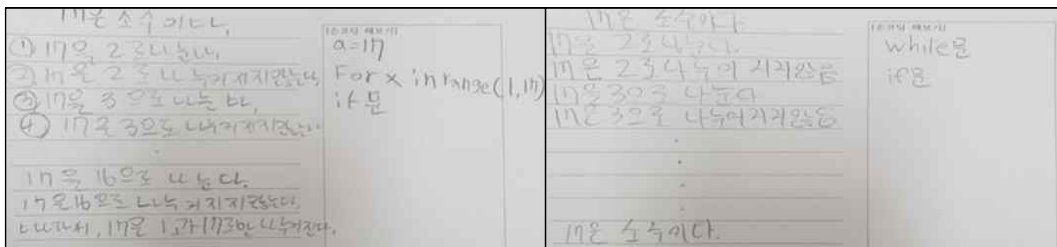 17은 소수이다.
① 17을 2로 나눈다.
② 17은 2로 나누어지지않는다.
③ 17을 3으로 나눈다.
④ 17은 3으로 나누어지지않는다.
17을 16으로 나눈다.
17은 16으로 나누어지지않는다.
따라서, 17은 1과 17로만 나누어진다.
a=17
For x in range(1,17)
if문
17은 소수이다.
17을 2로 나눈다.
17은 2로 나누어 지지않음
17을 3으로 나눈다
17은 3으로 나누어지지않음
17은 소수이다.
while문
if문